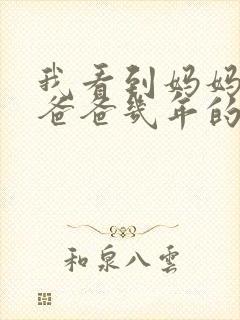 我看到妈妈
爸爸几年的
和泉八雲